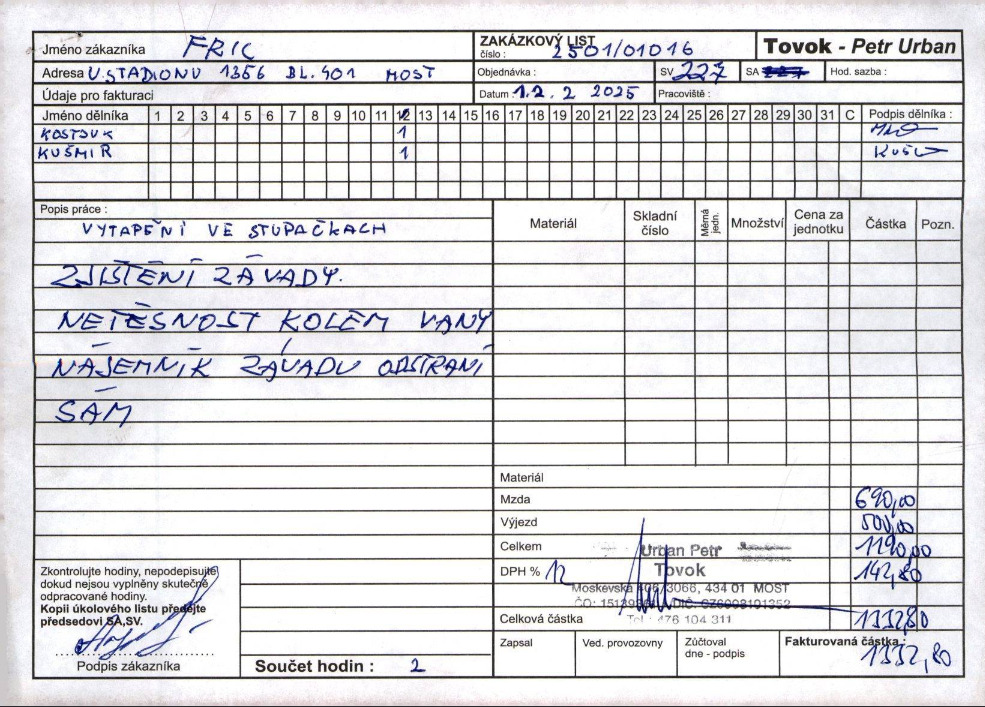 Jméno zákazníka FRIC ZAKÁZKOVÝ LIST číslo : 2501/01016 Tovok - Petr Urban
Adresa U.STADIONU 1356 BL.401 MOST Objednávka : SV 227 SA Hod. sazba :
Údaje pro fakturaci Datum : 12. 2 2025 Pracoviště :
Jméno dělníka 1 2 3 4 5 6 7 8 9 10 11 12 13 14 15 16 17 18 19 20 21 22 23 24 25 26 27 28 29 30 31 C Podpis dělníka :
KOSTJUK 1
KUŠMIR 1
Popis práce : Materiál Skladní číslo Měrná jedn. Množství Cena za jednotku Částka Pozn.
VYTAPĚNÍ VE STUPAČKACH
ZJIŠTĚNÍ ZÁVADY.
NETĚSNOST KOLEM VANY
NÁJEMNÍK ZÁVADU ODSTRANÍ
SÁM
Materiál
Mzda 690,00
Výjezd 500,00
Celkem 1190,00
DPH % 12 142,80
Urban Petr
Tovok
Moskevská 3066, 434 01 MOST
Celková částka 1332,80
Zkontrolujte hodiny, nepodepisujte
dokud nejsou vyplněny skutečně
odpracované hodiny.
Kopii úkolového listu předejte
předsedovi SA,SV.
Podpis zákazníka
Součet hodin : 2
Zapsal Ved. provozovny Zúčtoval dne - podpis Fakturovaná částka : 1332,80